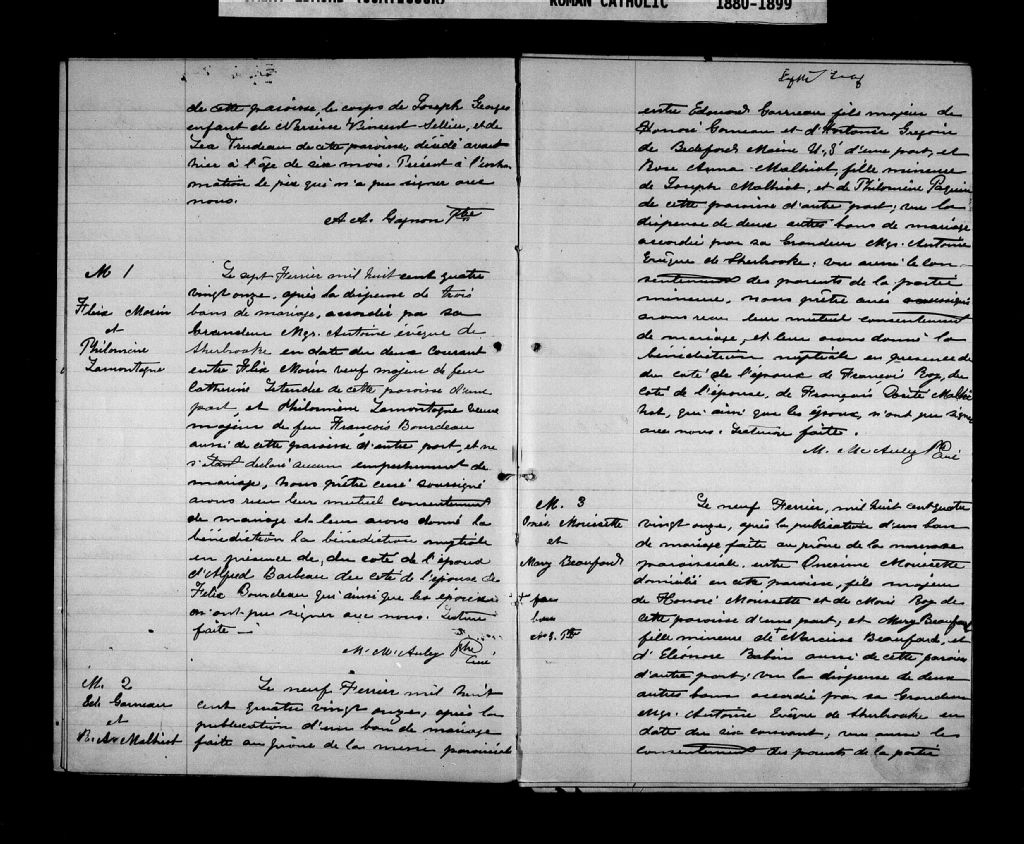 ROMAN CATHOLIC 1880-1899
de cette paroisse, le corps de Joseph Georges
enfant de Narcisse Vincent Sellier, et de
Lea Trudeau de cette paroisse, décédé avant
hier à l'âge de six mois. Présent à l'inhu
mation le père qui n'a pu signer avec
nous.
A A. Gagnon Ptre
M 1
Félix Morin
et
Philomène
Lamontagne
Le sept Fevrier mil huit cent quatre
vingt onze, après la dispense de trois
bans de mariage, accordée par sa
Grandeur Mgr. Antoine évêque de
Sherbrooke en date du deux courant
entre Félix Morin veuf majeur de feu
Catherine Letendre de cette paroisse d'une
part, et Philomène Lamontagne veuve
majeur de feu Francois Bourdeau
aussi de cette paroisse d'autre part, et ne
s'étant déclaré aucun empechement de
mariage, Nous prêtre curé soussigné
avons reçu leur mutuel consentement
de mariage et leur avons donné la
bénédiction la bénédiction nuptiale
en présence de, du coté de l'époux
d'Alfred Barbeau du coté de l'épouse de
Felix Bourdeau qui ainsi que les épouse
n'ont pu signer avec nous. Lecture
faite —
M. McAuley Ptre
Curé
M. 2
Ed. Garneau
et
R. A. Malhiot
Le neuf Fevrier mil huit
cent quatre vingt onze, après la
publication d'un ban de mariage
faite au prône de la messe paroissiale
entre Edouard Garneau fils majeur de
Honoré Garneau et d'Hortense Gregoire
de Bedeford Maine U.S d'une part, et
Rose Anna Malhiot, fille mineure
de Joseph Malhiot, et de Philomène Paquin
de cette paroisse d'autre part; vu la
dispense de deux autres bans de mariage
accordié par sa Grandeur Mgr. Antoine
Evêque de Sherbrooke; vu aussi le con-
sentement des parents de la partie
mineure, nous prêtre curé soussigné
avons reçu leur mutuel consentement
de mariage, et leur avons donné la
bénédiction nuptiale en presence de
du coté de l'époux de Francois Roy, du
coté de l'épouse, de François Malhi
hot, qui ainsi que les époux, n'ont pu signer
avec nous. Lecture faite.
M. McAuley Ptre
Curé
M. 3
Mourissette
et
Mary Beauford
Le neuf Fevrier, mil huit cent quatre
vingt onze, après la publication d'un ban
de mariage faite au prône de la messe
paroissiale, entre Onesime Mourissette
domicilié en cette paroisse, fils majeur
de Honoré Mourissette et de Marie Roy de
cette paroisse d'une part, et Mary Beauford
fille mineure de Narcisse Beauford, et
d'Eléonore Babin aussi de cette paroisse
d'autre part; Vu la dispense de deux
autres bans accordié par sa Grandeur
Mgr. Antoine Evêque de Sherbrooke en
date du six courant; vu aussi les
consentement des parents de la partie